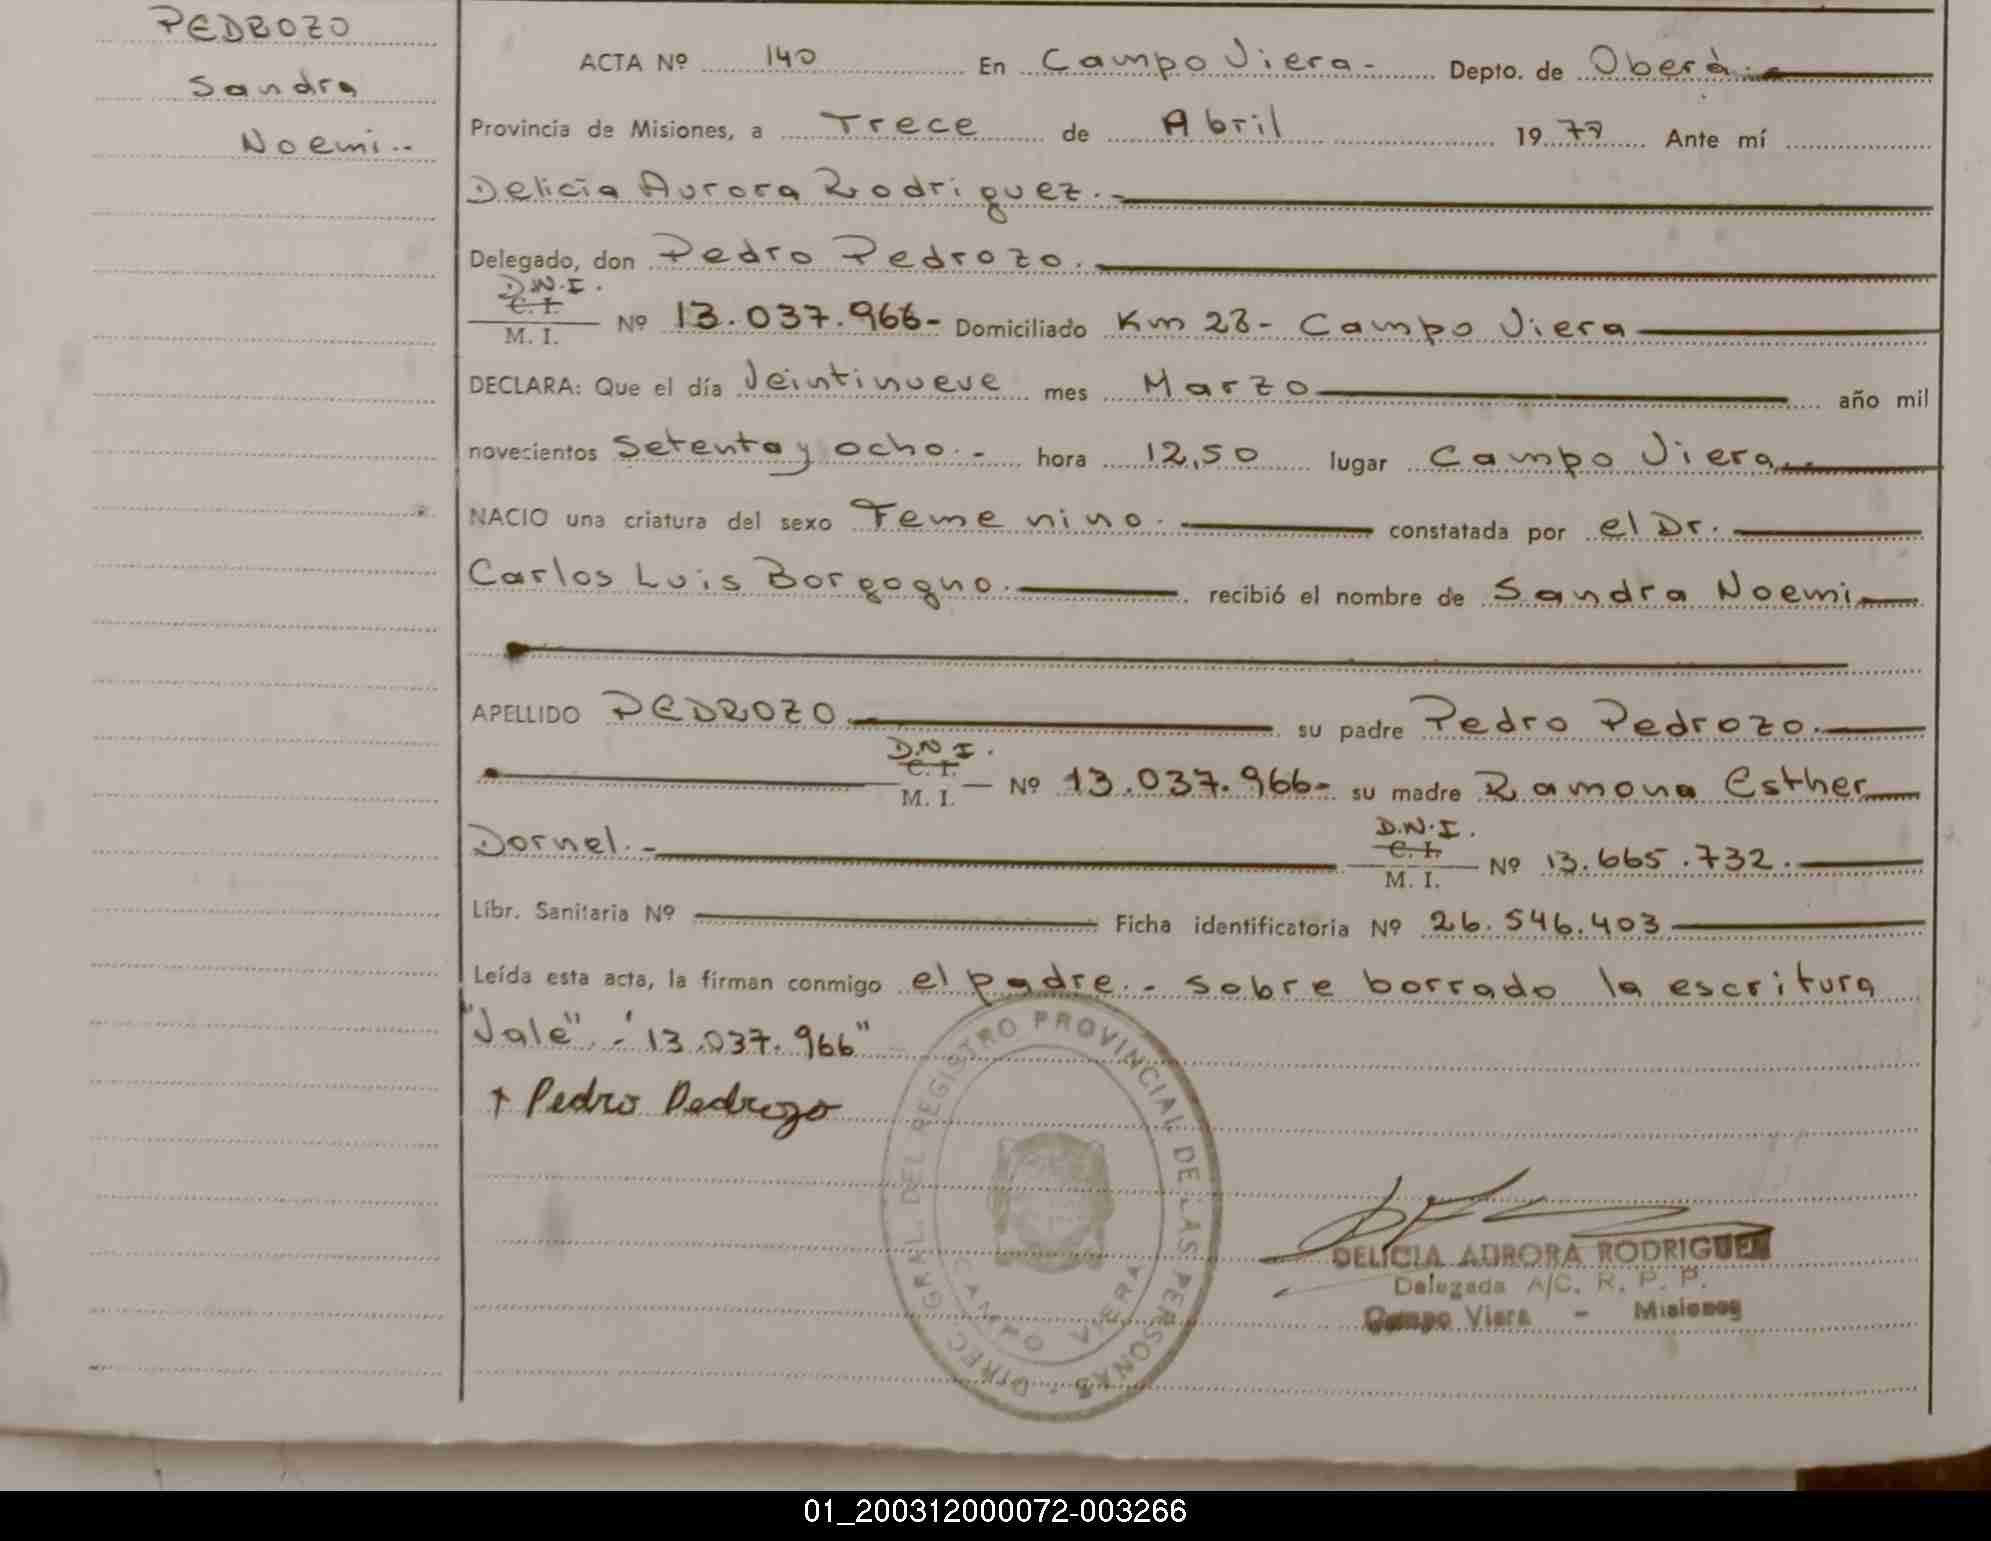 PEDROZO
Sandra
Noemi.-
ACTA Nº 140 En Campo Viera.- Depto. de Oberá.-
Provincia de Misiones, a Trece de Abril 1979 Ante mí
Delicia Aurora Rodriguez.-
Delegado, don Pedro Pedrozo.-
D.N.I.
C. I.
M. I. Nº 13.037.966- Domiciliado Km 28- Campo Viera
DECLARA: Que el día Veintinueve mes Marzo año mil
novecientos Setenta y ocho.- hora 12,50 lugar Campo Viera.-
NACIO una criatura del sexo Femenino. constatada por el Dr.
Carlos Luis Borgogno. recibió el nombre de Sandra Noemi
APELLIDO PEDROZO su padre Pedro Pedrozo.
D.N.I.
C. I.
M. I. Nº 13.037.966- su madre Ramona Esther
Dornel.-
D.N.I.
C. I.
M. I. Nº 13.665.732.
Libr. Sanitaria Nº Ficha identificatoria Nº 26.546.403
Leída esta acta, la firman conmigo el padre.- sobre borrado la escritura
"Vale".- "13.037.966"
+ Pedro Pedrozo
DIREC. GRAL. DEL REGISTRO PROVINCIAL DE LAS PERSONAS
CAMPO VIERA
DELICIA AURORA RODRIGUEZ
Delegada A/C. R. P. P.
Campo Viera - Misiones
01_200312000072-003266